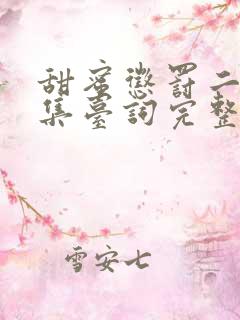 甜蜜懲罰二
集臺詞完整
雪安七